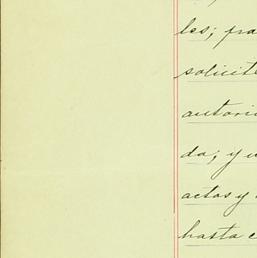 les; pra
solicit
autori
da; y u
actos y
hasta e